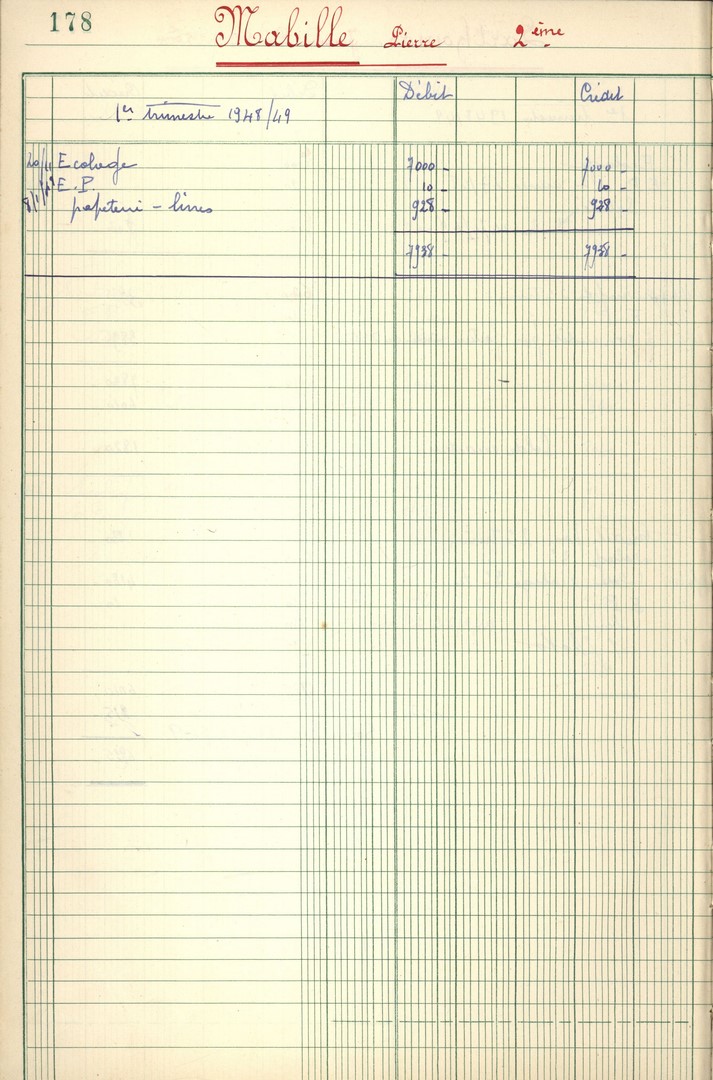 178 Mabille Pierre 2ème
Débit Crédit
1er trimestre 1948/49
20/11 Ecolage 7000 - 7000 -
E.P. 10 - 10 -
8/1/49 papeterie - livres 928 - 928 -
7938 - 7938 -